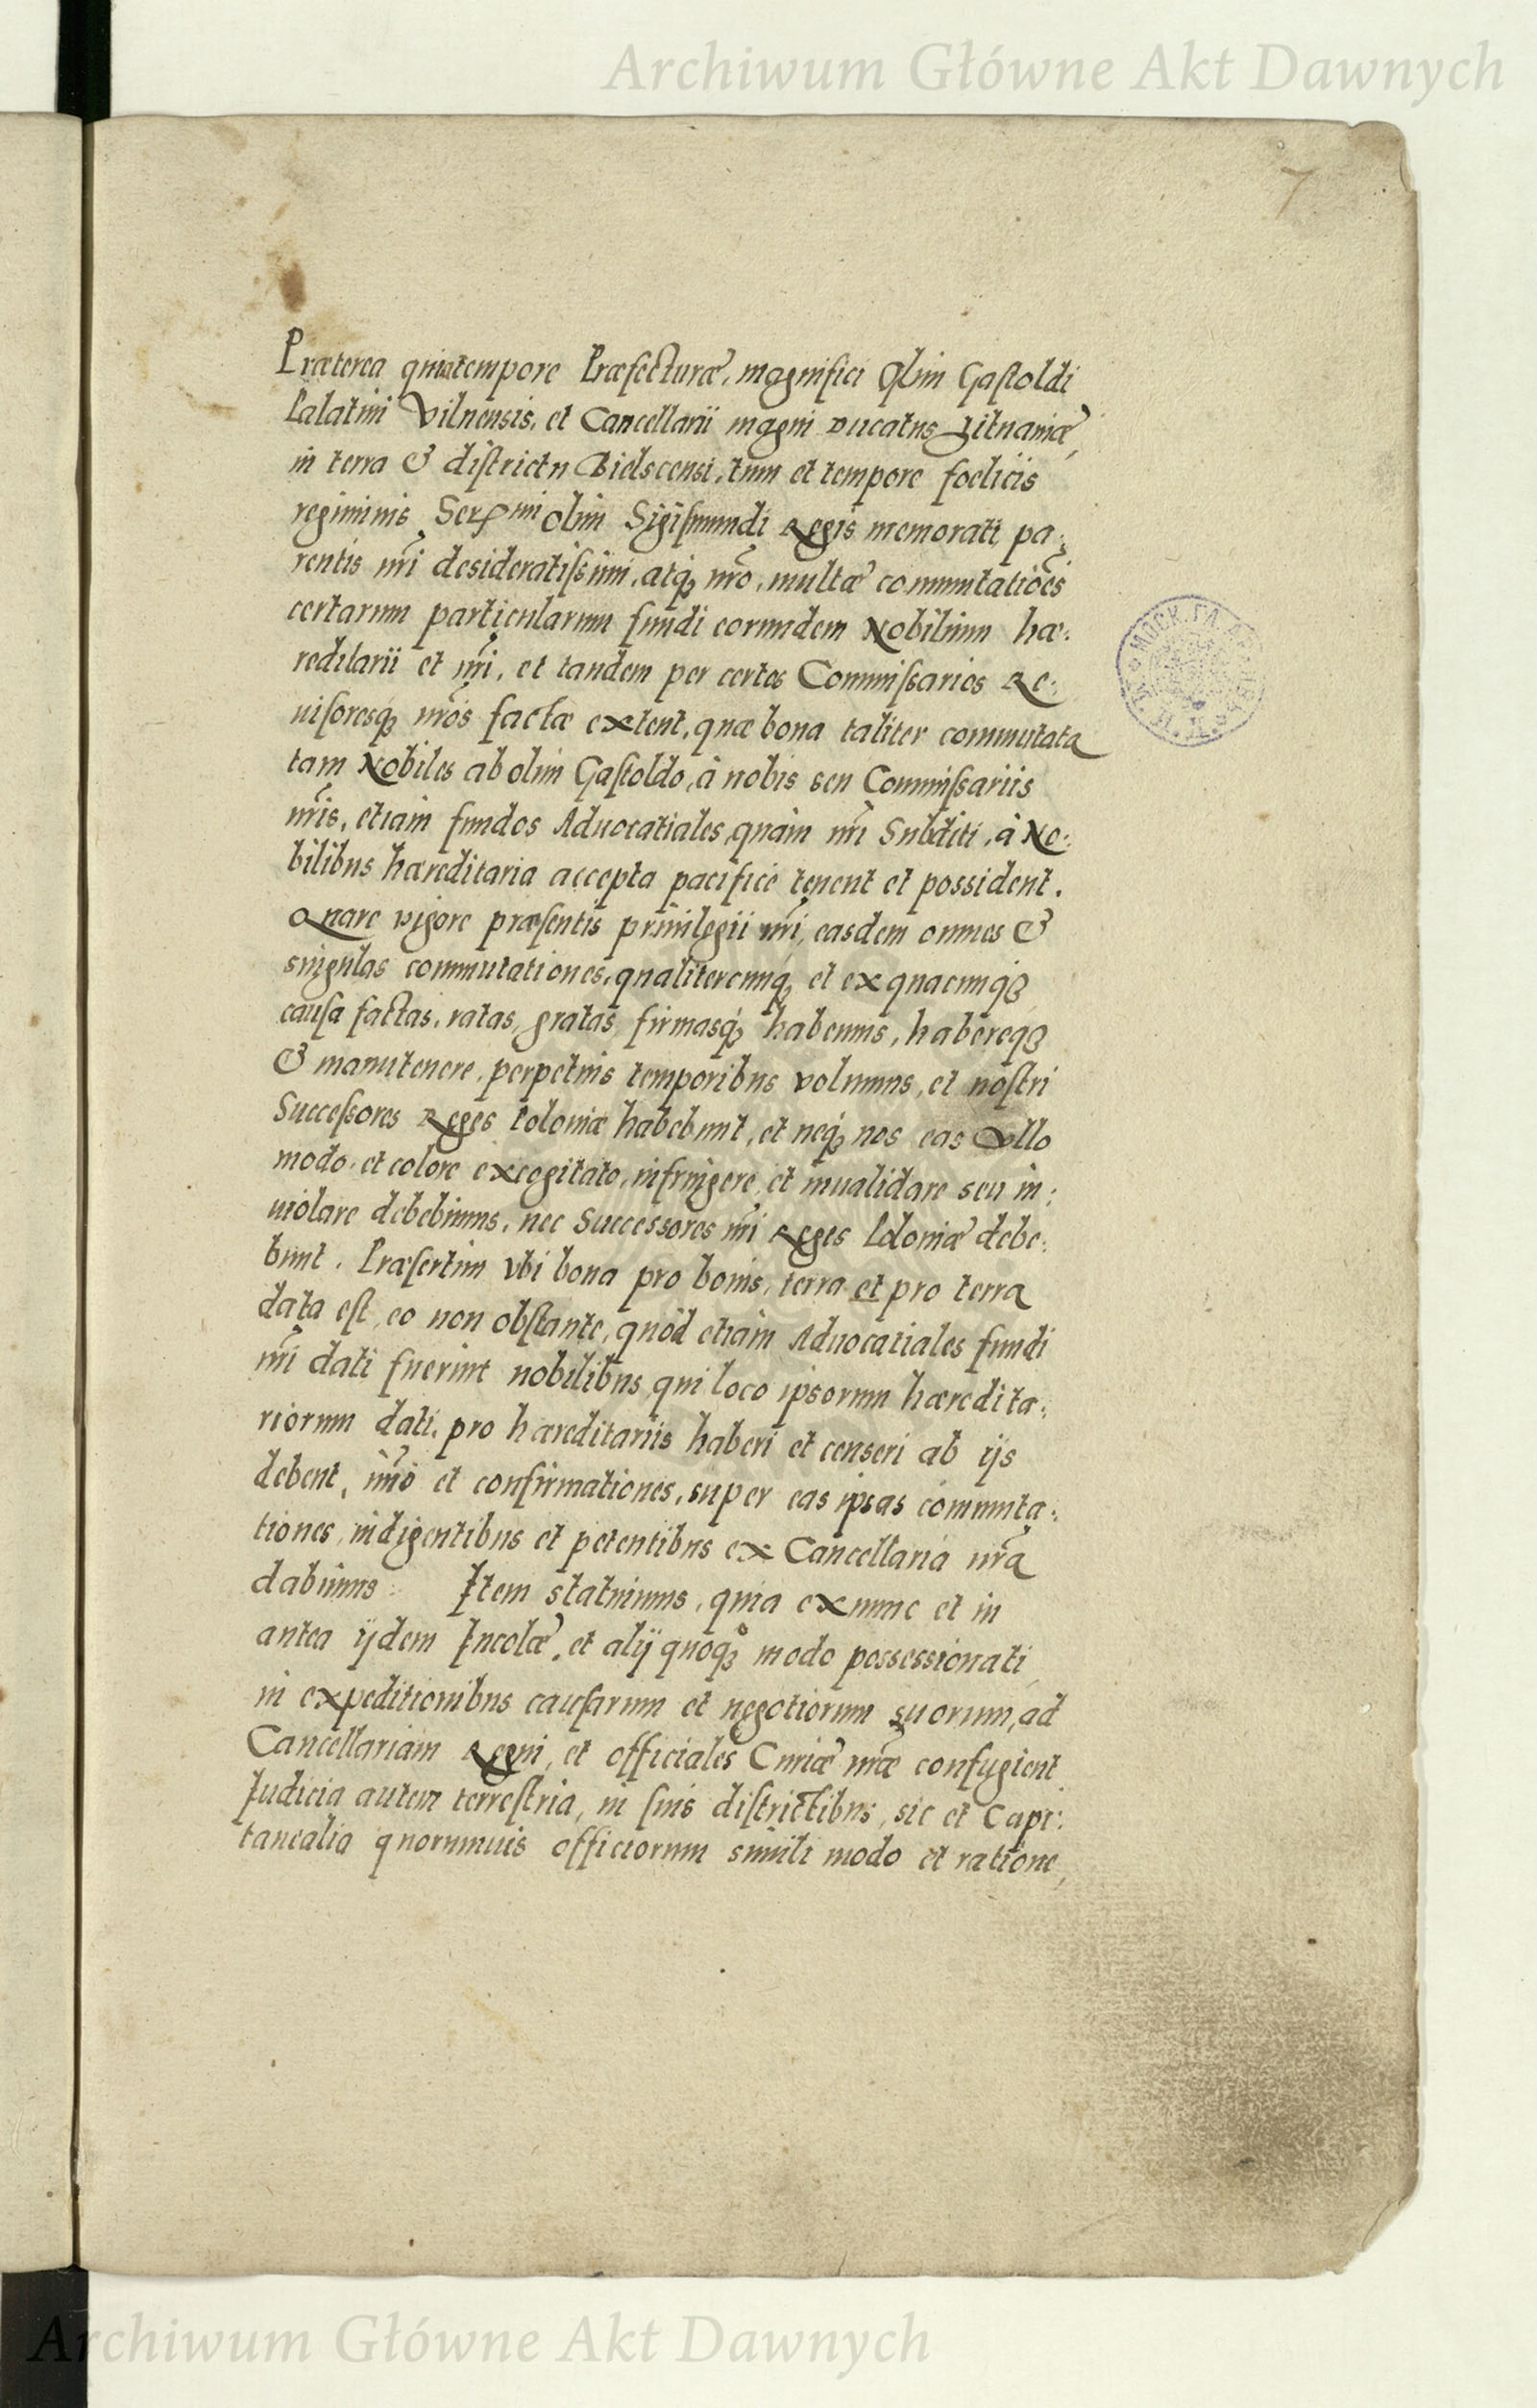 Archiwum Główne Akt Dawnych
7
Præterea quia tempore Præfecturæ, magnifici Olim Gaſtoldi
Palatini Vilnensis, et Cancellarii magni Ducatus Lituaniæ,
in terra & diſtrictu Bielscensi, tum et tempore foelicis
regiminis Serᵐⁱ olim Sigiſmundi Regis memorati pa:
rentis nr̃i desideratiſsimi, atq́; nr̃o, multæ commutatiões
certarum particularum fundi eorumdem Nobilium hæ:
reditarii et nr̃i, et tandem per certos Commiſsarios Re:
uiſoresq́; nr̃os factæ extent, quæ bona taliter commutata
tam Nobiles ab olim Gaſtoldo, à nobis seu Commiſsariis
nr̃is, etiam fundos Aduocatiales, quàm nr̃i Subditi, à No:
bilibus hæreditaria accepta pacificè tenent et possident.
Quare vigore præſentis priuilegii nr̃i, easdem omnes &
singulas commutationes, qualitercunq́; et ex quacunq́;
cauſa factas, ratas, gratas, firmasq́; habemus, habereq́;
& manutenere, perpetuis temporibus volumus, et noſtri
Succeſsores Reges Poloniæ habebunt, et neq́; nos eas Vllo
modo, et colore excogitato, infringere, et inualidare seu in:
uiolare debebimus, nec Successores nr̃i Reges Poloniæ debe:
bunt. Præſertim vbi bona pro bonis, terra et pro terra
data eſt, eo non obſtante, quòd etiàm Aduocatiales fundi
nr̃i dati fuerint nobilibus, qui loco ipsorum hæredita:
riorum dati, pro hæreditariis haberi et censeri ab ijs
debent, imò et confirmationes, super eas ipsas commuta:
tiones, indigentibus et petentibus ex Cancellaria nr̃a
dabimus. Item statuimus, quia ex nunc et in
antea ijdem Incolæ, et alij quoq́; modo possessionati,
in expeditionibus cauſarum et negotiorum suorum, ad
Cancellariàm Regni, et officiales Curiæ nr̃æ confugient
Judicia autem terreſtria, in ſuis diſtrictibus, sic et Capi:
tanealia quorumuis officiorum simili modo et ratione,
Archiwum Główne Akt Dawnych